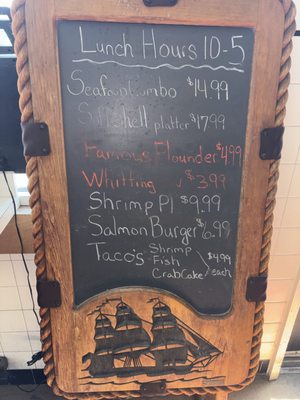 Lunch Hours 10-5
Seafood Gumbo $14.99
Softshell platter $17.99
Famous Flounder $4.99
Whitting $3.99
Shrimp Pl $9.99
Salmon Burger $6.99
Taco's Shrimp
Fish
Crab Cake / $4.99 each